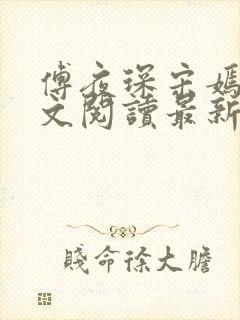 傅夜深宋嫣
文閱讀最新
賤命徐大膽